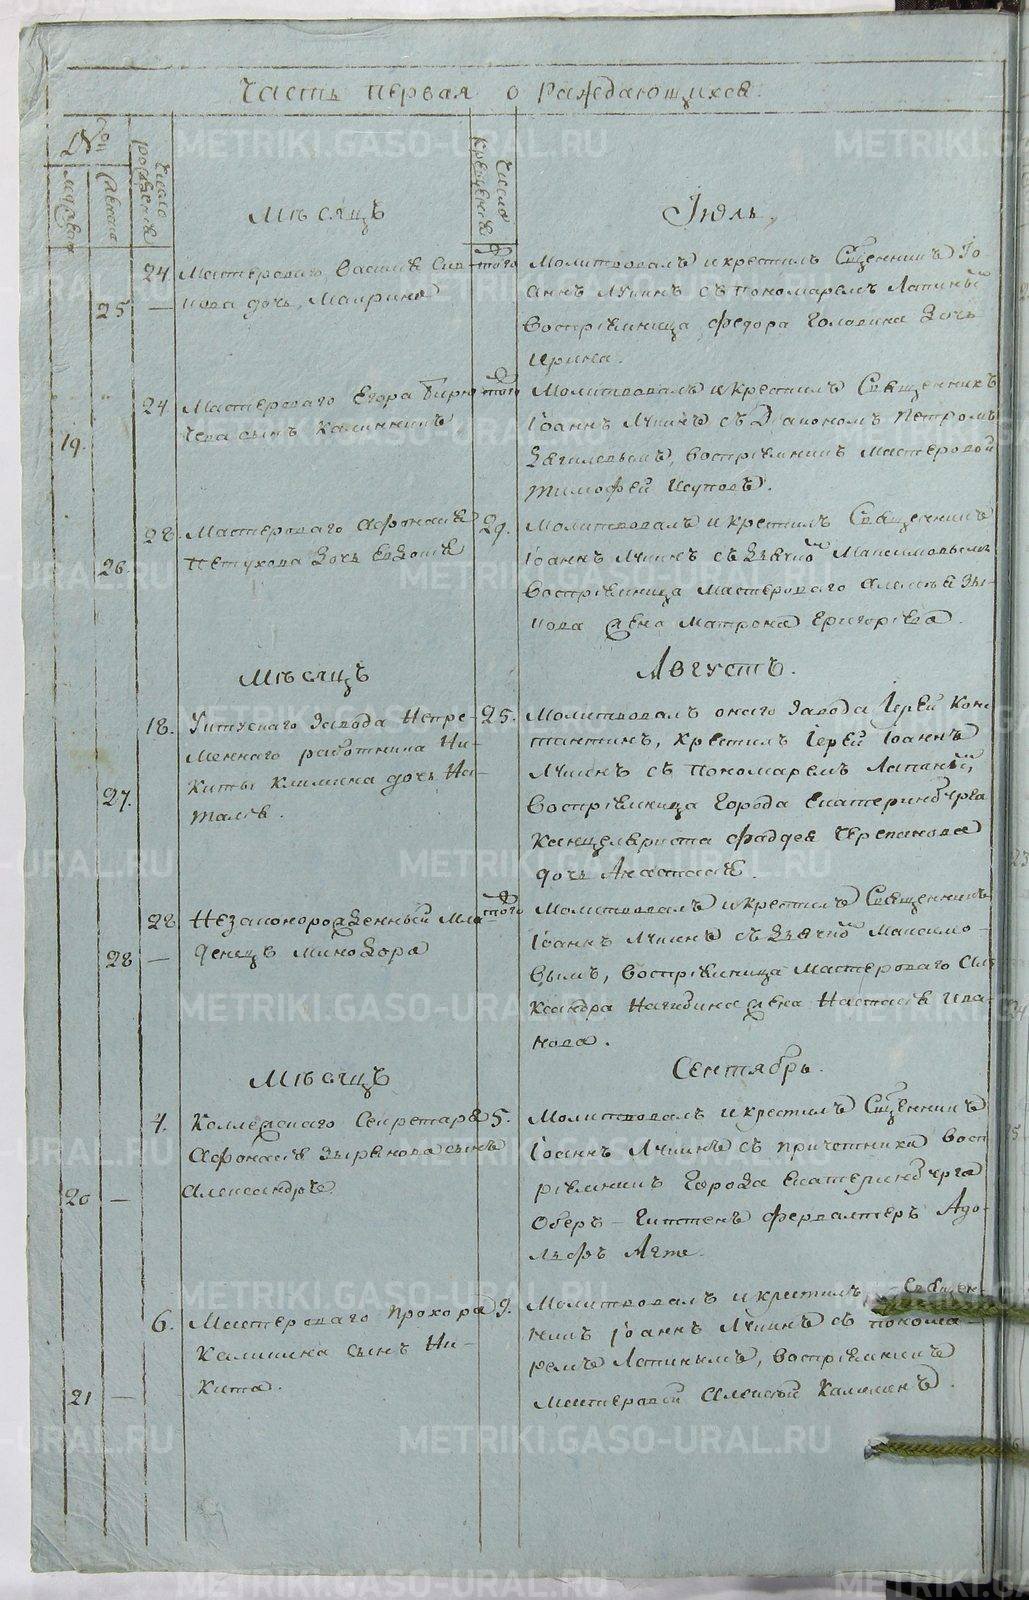 Часть первая о раждающихся
№
число рождения
число крещения
Мѣсяцъ
Іюль,
24
25
Мастероваго Василия
дочь Маирина
того
Молитвовалъ и крестилъ Сщенникъ Іо-
аннъ Лучинъ съ пономаремъ Лапиный
Воспріемница Федора Головина дочь
Ирина.
24
19.
Мастероваго Егора
сынъ Калинникъ
того
Молитвовалъ и крестилъ Священникъ
Іоаннъ Лучинъ съ Діакономъ Петромъ
воспріемникъ мастеровой
Тимофей Исуповъ.
28.
26.
Мастероваго Афонасия
Петухова дочь Евдокия
29.
Молитвовалъ и крестилъ Священникъ
Іоаннъ Лучинъ съ дьячкомъ Максимовымъ
Воспріемница Мастероваго Алексея Зы-
кова жена Матрона Григорьева.
Мѣсяцъ
Августъ.
18.
27.
Уткускаго завода Непре-
меннаго работника Ни-
киты Климина дочь На-
талія.
25.
Молитвовалъ онаго завода Іерей Конс-
тантинъ, крестилъ Іерей Іоаннъ
Лучинъ съ пономаремъ Лапиный,
Воспріемница города Екатеринбурга
Канцеляриста Фаддея Черепанова
дочь Анастасія.
28
28
Незаконорожденный мла-
денецъ Минодора
того
Молитвовалъ и крестилъ Священникъ
Іоаннъ Лучинъ съ дьячкомъ Максимо-
вымъ, воспріемница Мастероваго Але-
ксандра Нагибина жена Настасія Ива-
нова.
Мѣсяцъ
Сентябрь.
4.
20
Коллежскаго Секретаря
Афонасія Зырянова сынъ
Александръ
5.
Молитвовалъ и крестилъ Сщенникъ
Іоаннъ Лучинъ съ причетники восп-
ріемникъ города Екатеринбурга
Оберъ-Гиттенъ фервалтеръ Адо-
льфъ Агте.
6.
21
Мастероваго Прохора
Калинина сынъ Ни-
кита.
9.
Молитвовалъ и крестилъ Священ-
никъ Іоаннъ Лучинъ съ понома-
ремъ Лапинымъ, воспріемникъ
Мастеровой Алексей
METRIKI.GASO-URAL.RU